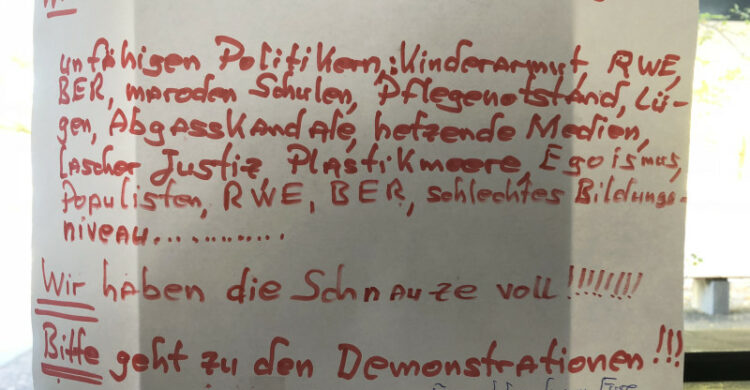 unfähigen Politikern, Kinderarmut, RWE,
BER, maroden Schulen, Pflegenotstand, Lü-
gen, Abgasskandale, hetzende Medien,
lascher Justiz, Plastikmeere, Egoismus,
Populisten, RWE, BER, schlechtes Bildungs-
niveau............
Wir haben die Schnauze voll!!!!!!!!
Bitte geht zu den Demonstrationen!!!